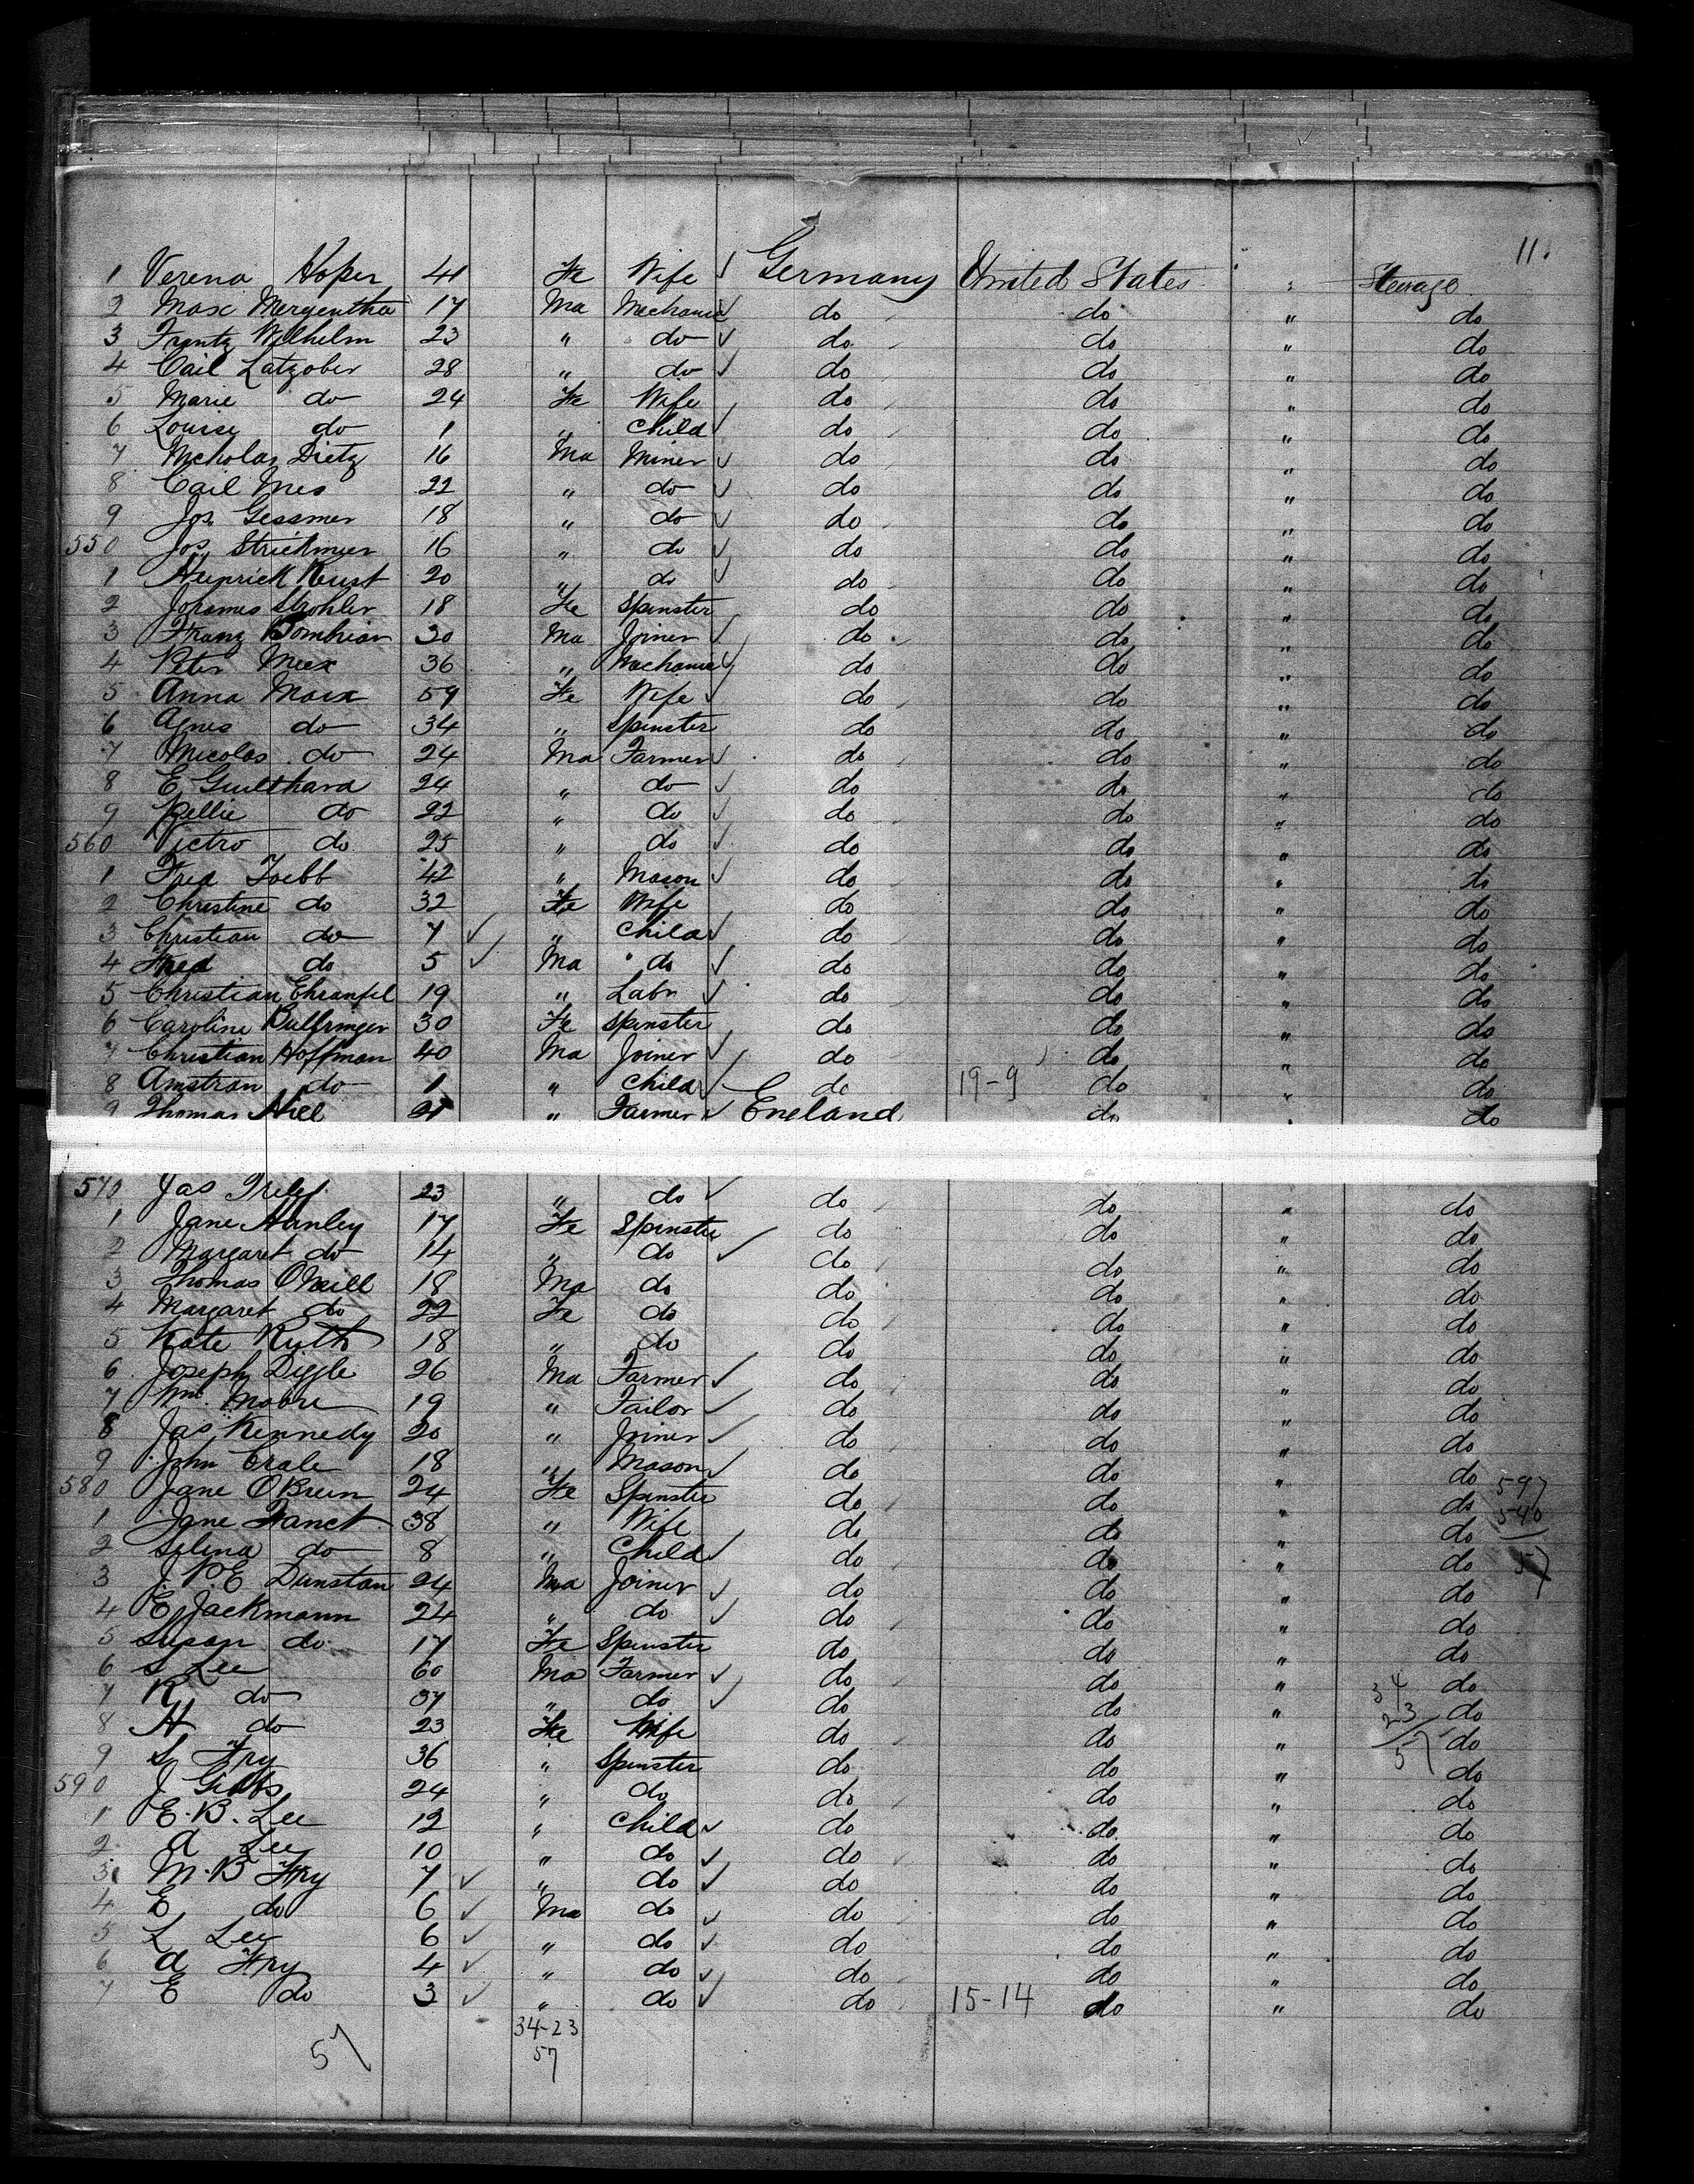 11.
1 Verena Hoper 41 Fe Wife ✓ Germany United States " Steerage
2 Max Mergentha 17 Ma Mechanic ✓ do do " do
3 Frantz Wilhelm 23 " do ✓ do do " do
4 Cail Latzober 28 " do ✓ do do " do
5 Marie do 24 Fe Wife do do " do
6 Louise do 1 " Child ✓ do do " do
7 Nicholas Dietz 16 Ma Miner ✓ do do " do
8 Cail Mes 22 " do ✓ do do " do
9 Jos Gessmer 18 " do ✓ do do " do
550 Jos 16 " do ✓ do do " do
1 Heinrich 20 " do ✓ do do " do
2 Johannes Strohler 18 Fe Spinster do do " do
3 Franz 30 Ma Joiner ✓ do do " do
4 Peter Meex 36 " Mechanic ✓ do do " do
5 Anna Marx 59 Fe Wife ✓ do do " do
6 Agnes do 34 " Spinster do do " do
7 Nicolas do 24 Ma Farmer ✓ do do " do
8 E Guilthard 24 " do ✓ do do " do
9 Pellie do 22 " do ✓ do do " do
560 Victro do 25 " do ✓ do do " do
1 Fred Toebb 42 " Mason ✓ do do " do
2 Christine do 32 Fe Wife do do " do
3 Christian do 7 ✓ " Child ✓ do do " do
4 Fred do 5 ✓ Ma do ✓ do do " do
5 Christian Ehranfel 19 " Labr ✓ do do " do
6 Caroline Bulfringer 30 Fe Spinster do do " do
7 Christian Hoffman 40 Ma Joiner ✓ do do " do
8 Amstran do 1 " Child ✓ do 19-9 do " do
9 Thomas Hill 21 " Farmer ✓ England do " do
570 Jas 23 " do ✓ do do " do
1 Jane Hanley 17 Fe Spinster do do " do
2 Margaret do 14 " do ✓ do do " do
3 Thomas ONeill 18 Ma do do do " do
4 Margaret do 22 Fe do do do " do
5 Kate Ruth 18 " do do do " do
6 Joseph Diggle 26 Ma Farmer ✓ do do " do
7 Wm. Moore 19 " Tailor ✓ do do " do
8 Jas Kennedy 20 " Joiner ✓ do do " do
9 John Crale 18 " Mason ✓ do do " do
580 Jane OBrien 24 Fe Spinster do do " do 597
1 Jane Hanct 38 " Wife do do " do 540
2 Selina do 8 " Child ✓ do do " do 57
3 J. P. E Dunstan 24 Ma Joiner ✓ do do " do
4 E Jackmann 24 " do ✓ do do " do
5 Susan do 17 Fe Spinster do do " do
6 S Lee 60 Ma Farmer ✓ do do " do
7 R do 37 " do ✓ do do " 34 do
8 H do 23 Fe Wife do do " 23 do
9 S Fry 36 " Spinster do do " 57 do
590 J Gibbs 24 " do do do " do
1 E. B. Lee 12 " Child ✓ do do " do
2 A Lee 10 " do ✓ do do " do
3 M. B Fry 7 ✓ " do ✓ do do " do
4 E do 6 ✓ Ma do ✓ do do " do
5 L Lee 6 ✓ " do ✓ do do " do
6 A Fry 4 ✓ " do ✓ do do " do
7 E do 3 ✓ " do ✓ do 15-14 do " do
34-23
57 57